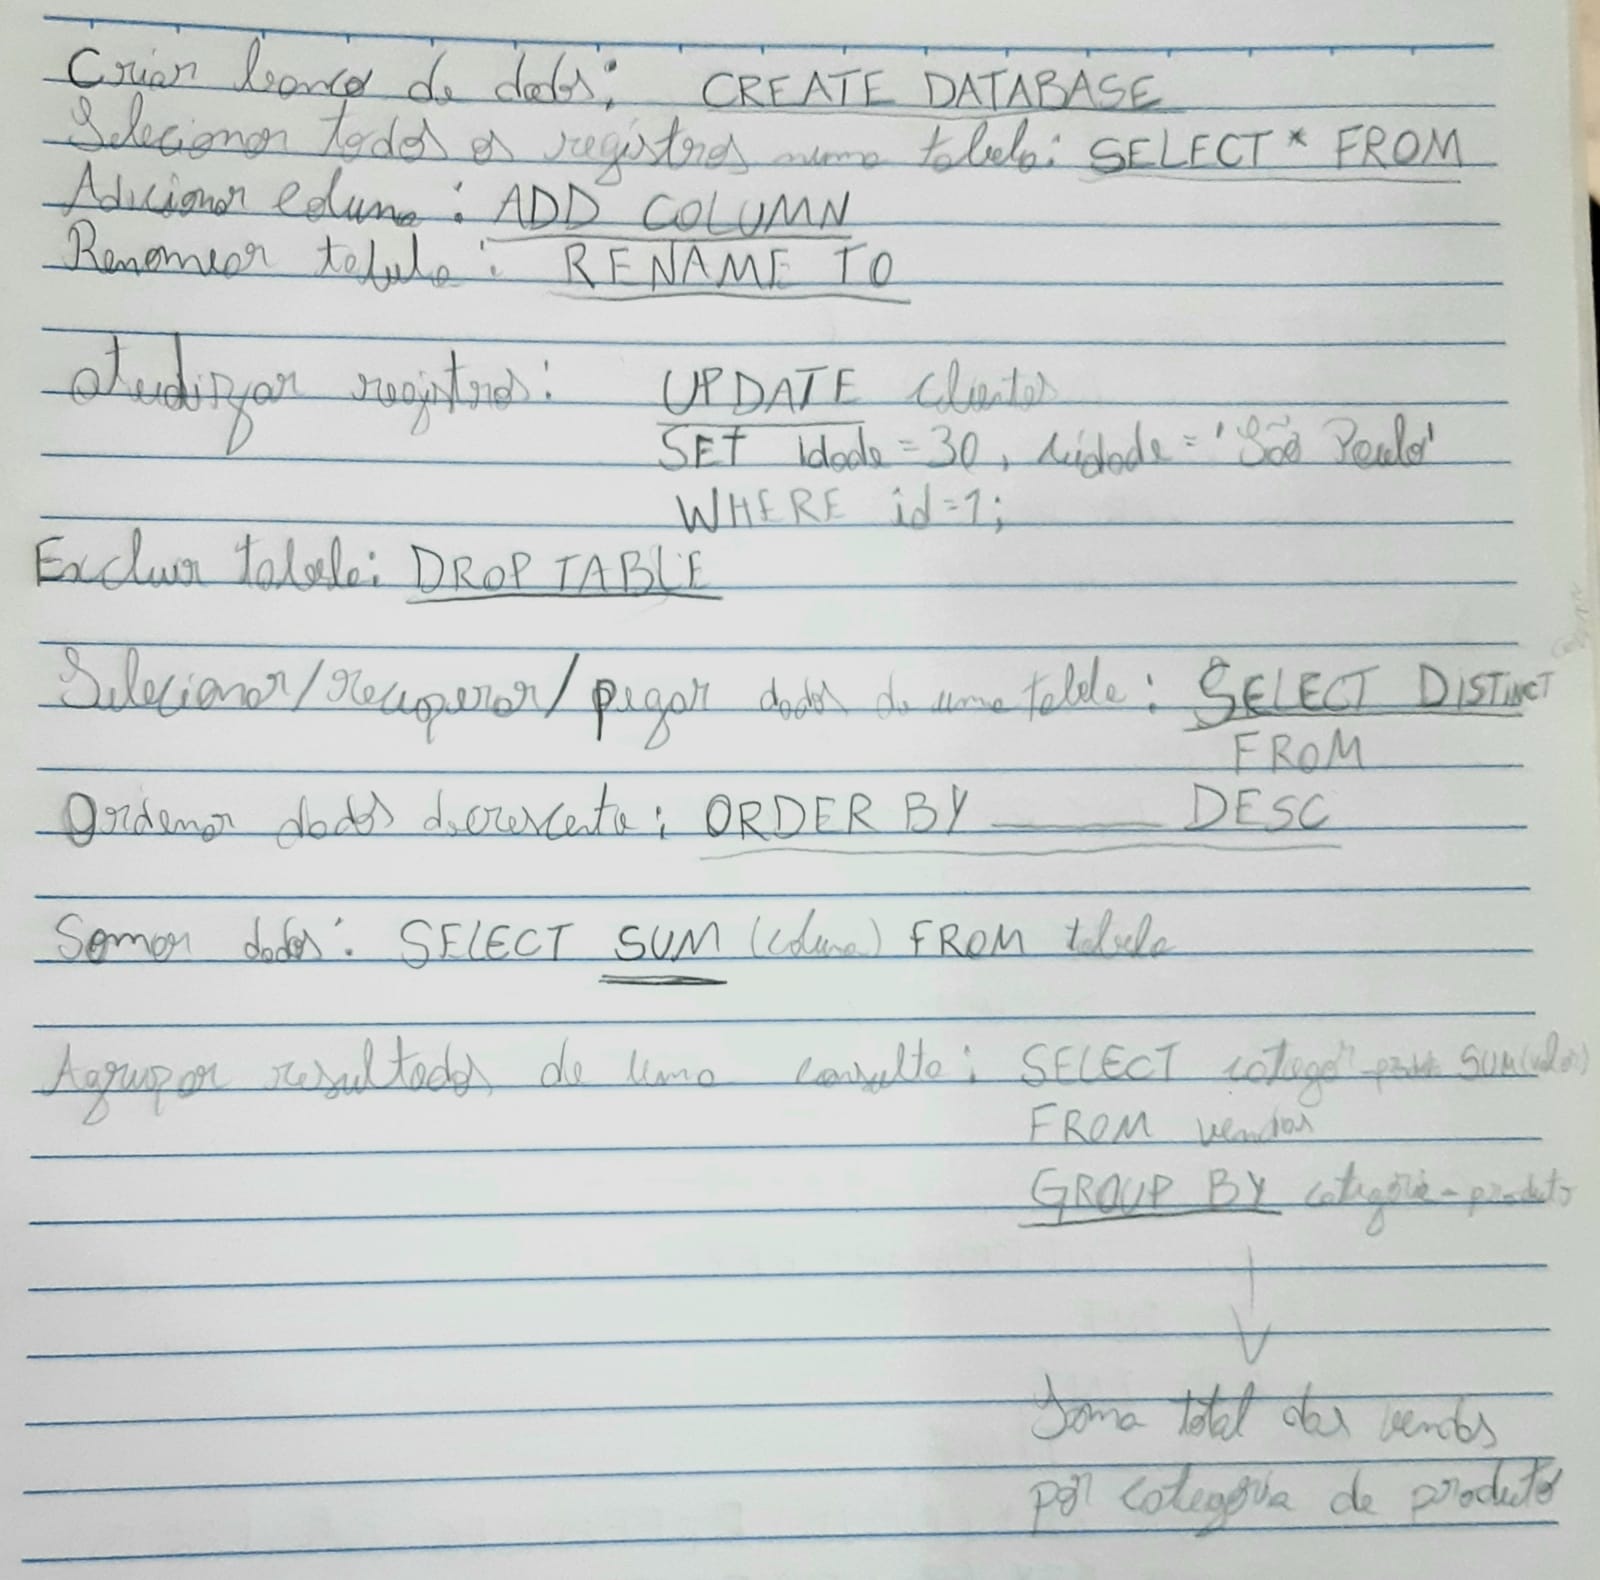 Criar banco de dados: CREATE DATABASE
Selecionar todos os registros numa tabela: SELECT * FROM
Adicionar coluna: ADD COLUMN
Renomear tabela: RENAME TO
Atualizar registros: UPDATE clientes
SET idade = 30, cidade = 'São Paulo'
WHERE id=1;
Excluir tabela: DROP TABLE
Selecionar/recuperar/pegar dados de uma tabela: SELECT DISTINCT
FROM
Ordenar dados decrescente: ORDER BY ____ DESC
Somar dados: SELECT SUM (coluna) FROM tabela
Agrupar resultados de uma consulta: SELECT SUM(valor)
FROM vendas
GROUP BY categoria-produto
Soma total das vendas
por categoria de produto